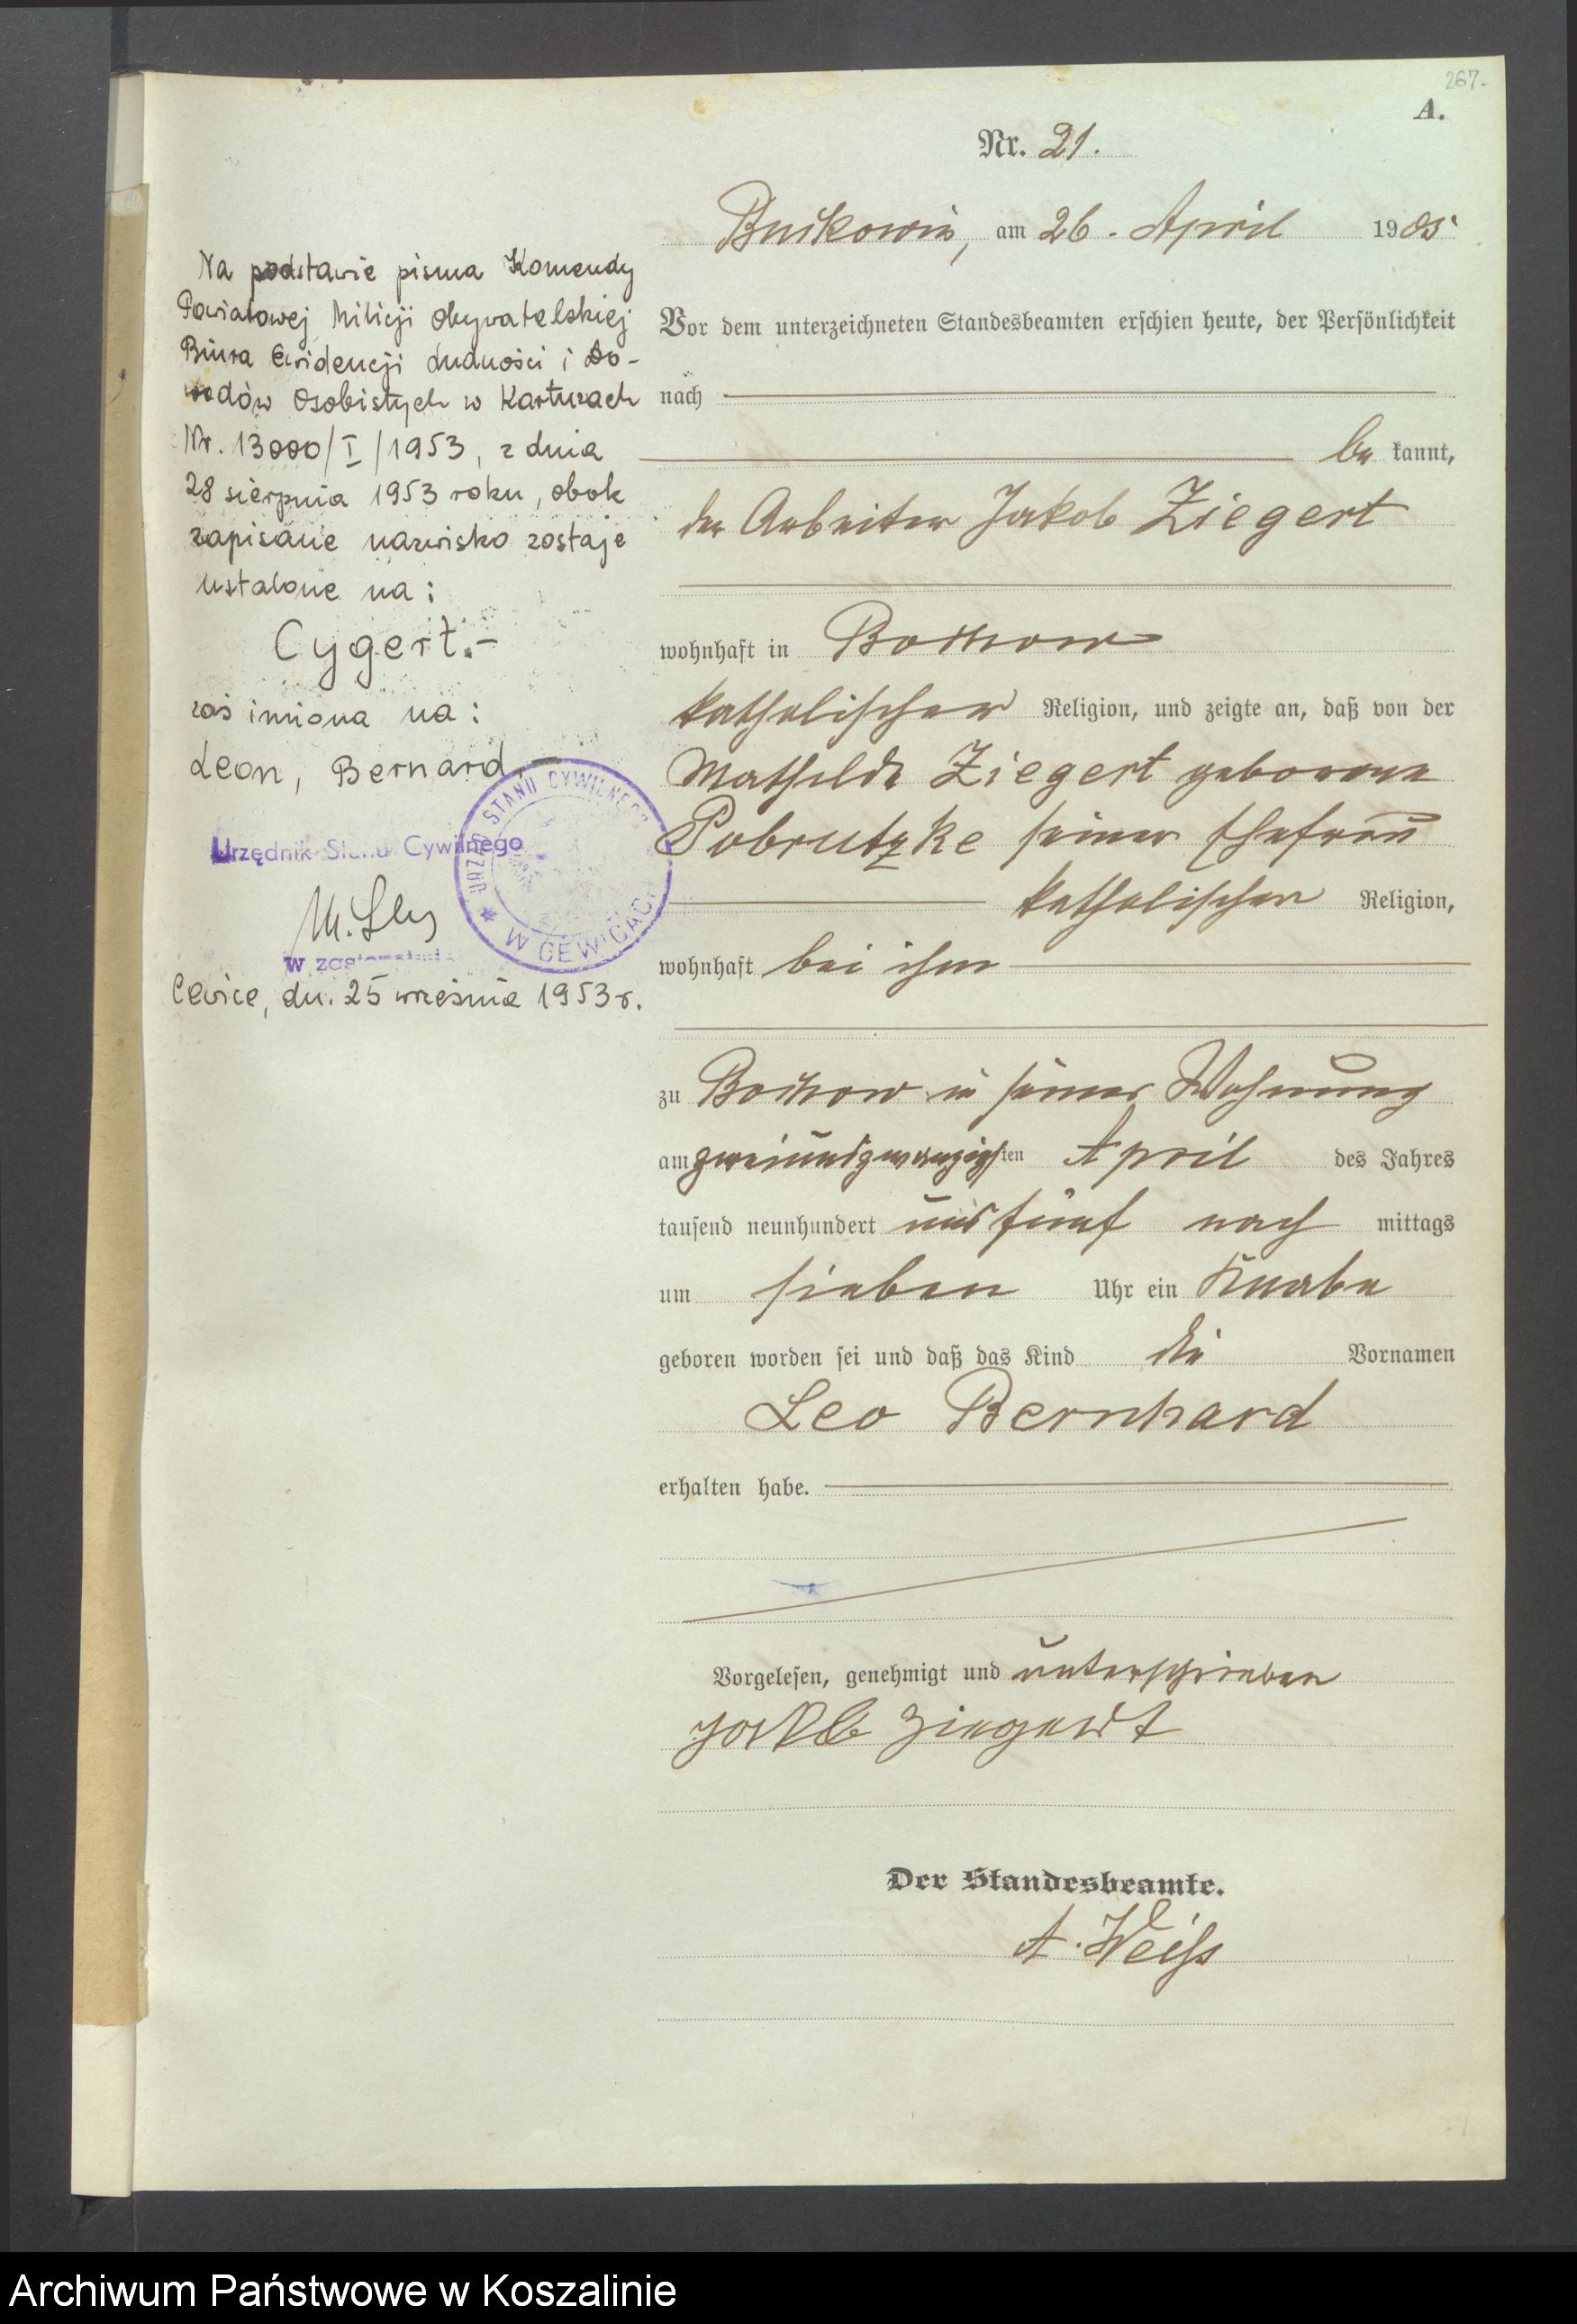 267.
A.
Nr. 21.
Buckowin, am 26. April 1905
Vor dem unterzeichneten Standesbeamten erschien heute, der Persönlichkeit
nach
be kannt,
der Arbeiter Jakob Ziegert
wohnhaft in
katholischer Religion, und zeigte an, daß von der
Mathilde Ziegert geborene
Pobrutzke seiner Ehefrau
katholischer Religion,
wohnhaft bei ihm
zu in seiner Wohnung
am zweiundzwanzigsten April des Jahres
tausend neunhundert und fünf nach mittags
um sieben Uhr ein Knabe
geboren worden sei und daß das Kind die Vornamen
Leo Bernhard
erhalten habe.
Vorgelesen, genehmigt und unterschrieben
Jakob Ziegert
Der Standesbeamte.
A. Weiß
Na podstawie pisma Komendy
Powiatowej Milicji Obywatelskiej
Biura Ewidencji Ludności i Do-
wodów Osobistych w Kartuzach
Nr. 13000/I/1953, z dnia
28 sierpnia 1953 roku, obok
zapisane nazwisko zostaje
ustalone na:
Cygert.-
zaś imiona na:
Leon, Bernard.
Urzędnik Stanu Cywilnego
URZĄD STANU CYWILNEGO
W CEWICACH
M.
w zastępstwie
Cewice, dn. 25 września 1953 r.
Archiwum Państwowe w Koszalinie